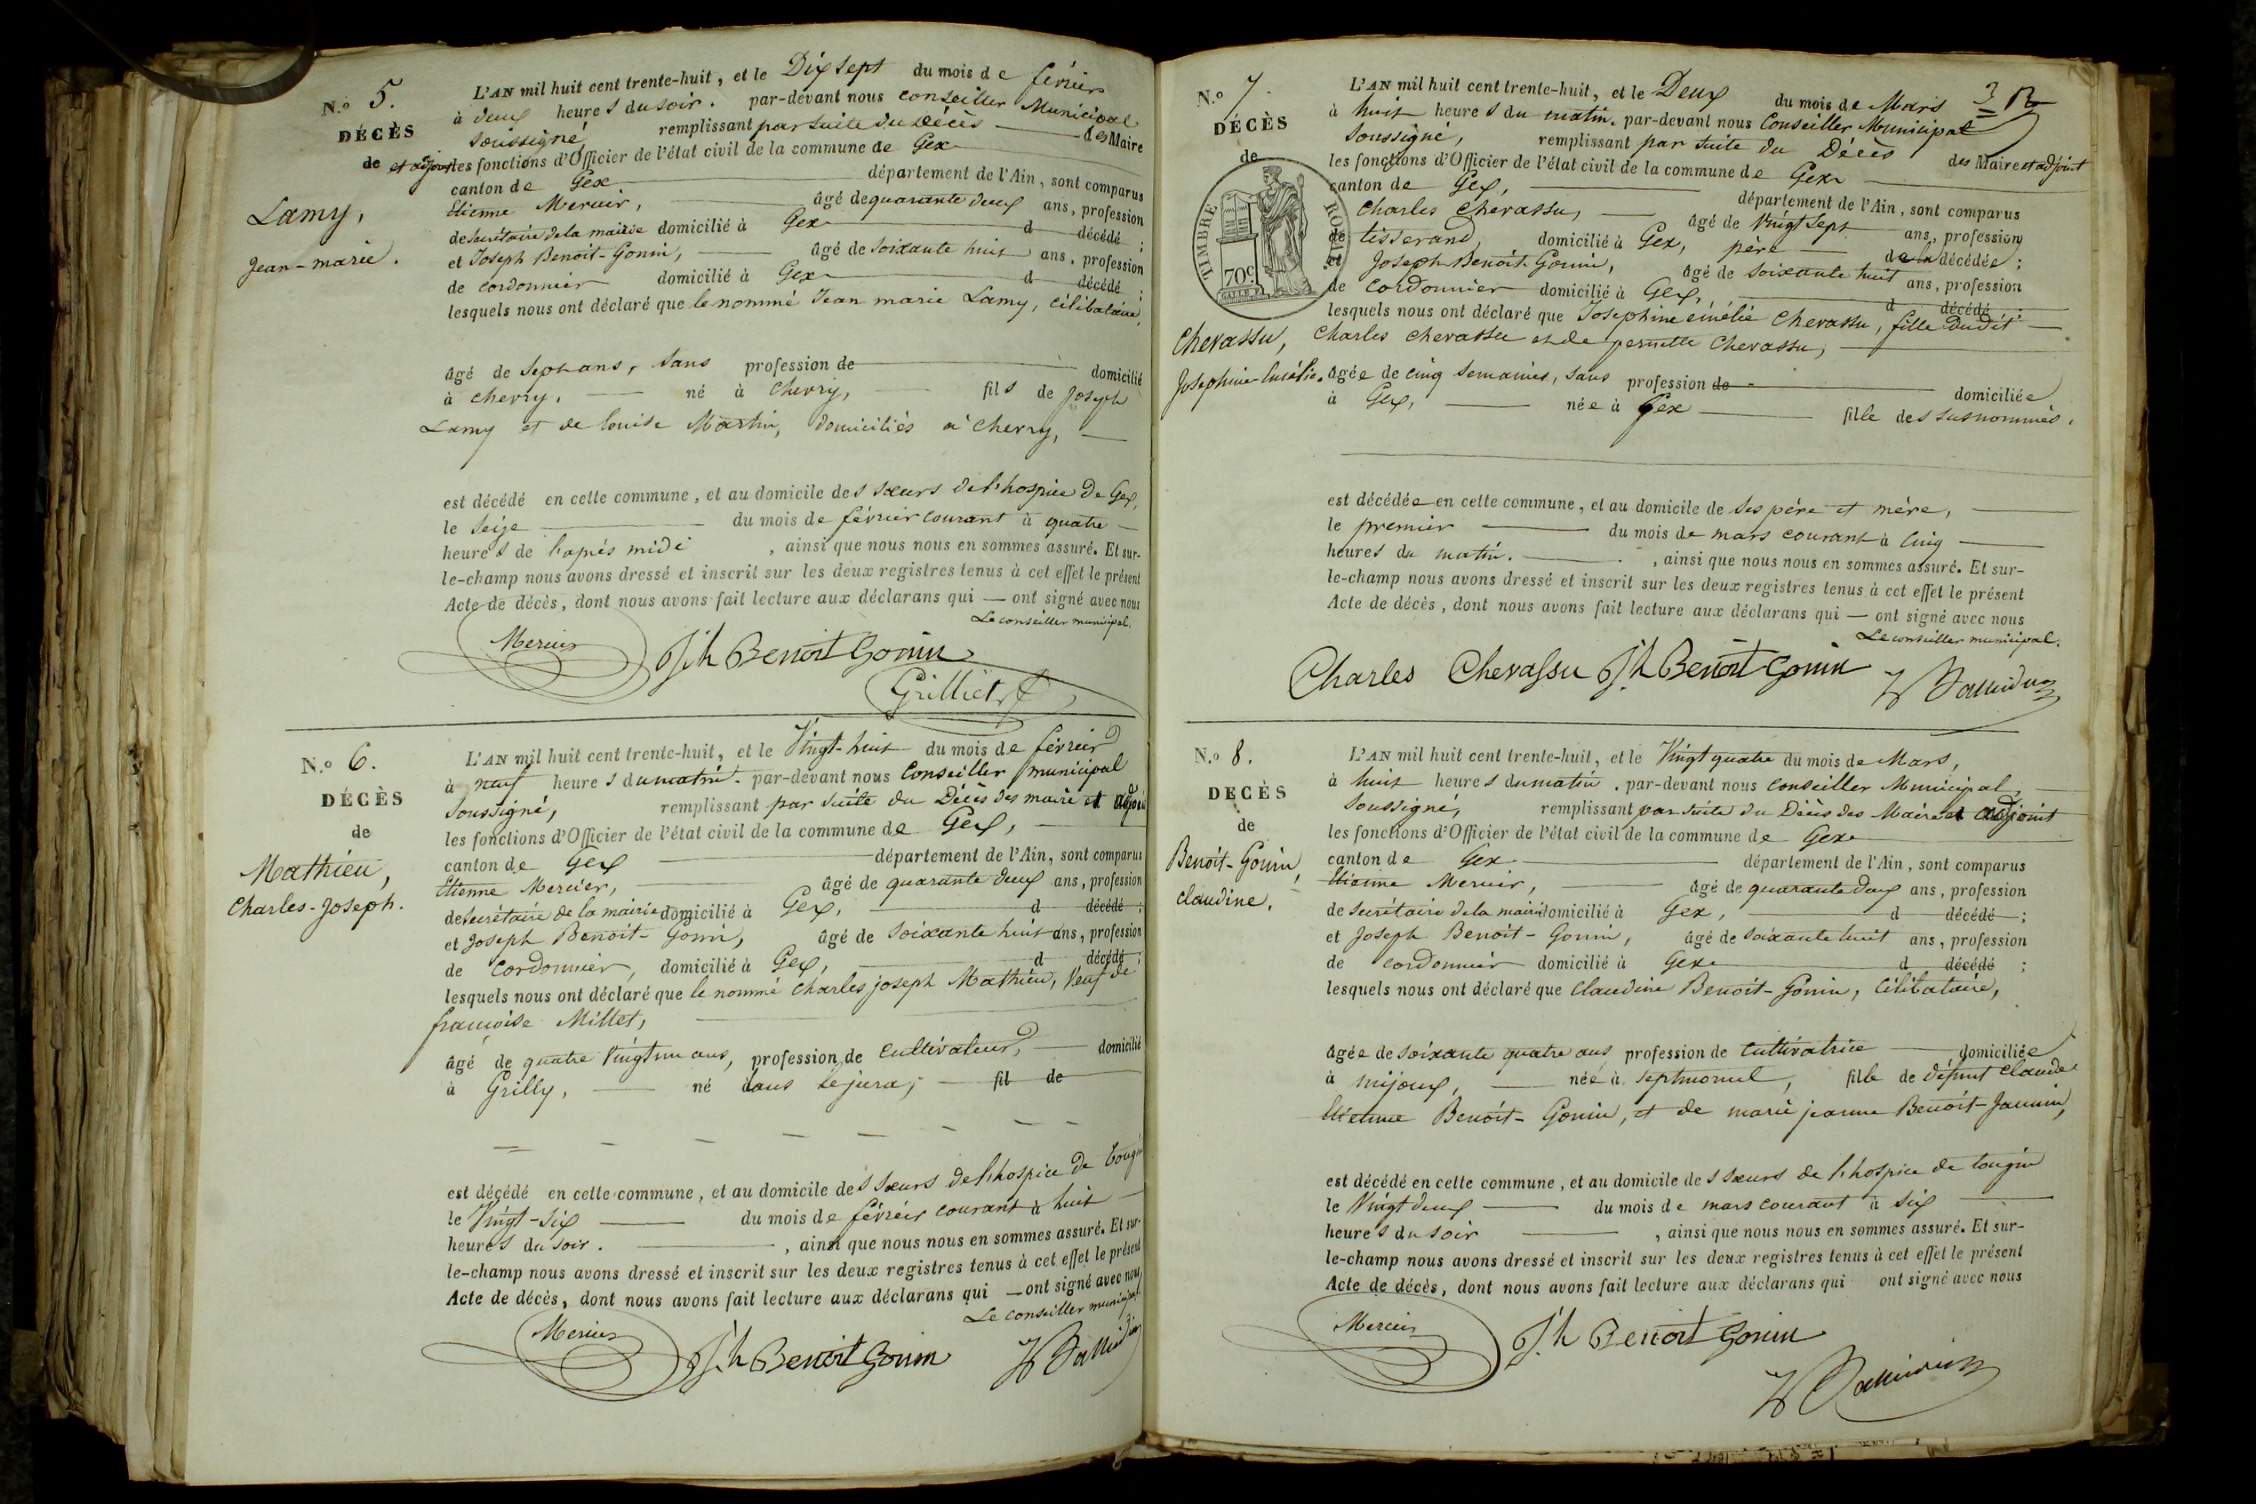 N.º 5.
DÉCÈS
de
Lamy,
Jean-marie.
L'AN mil huit cent trente-huit, et le Dix sept du mois de février
à deux heures du soir. par-devant nous conseiller Municipal
soussigné, remplissant par suite du Décès des Maire
et adjoint les fonctions d'Officier de l'état civil de la commune de Gex
canton de Gex département de l'Ain, sont comparus
Etienne Mercier, âgé de quarante deux ans, profession
de secrétaire de la mairie domicilié à Gex d décédé ;
et Joseph Benoit-Gonin, âgé de soixante huit ans, profession
de cordonnier domicilié à Gex d décédé ;
lesquels nous ont déclaré que le nommé Jean marie Lamy, célibataire,
âgé de sept ans, sans profession de domicilié
à chevry, né à chevry, fils de Joseph
Lamy et de louise Martin, domiciliés à chevry,
est décédé en cette commune, et au domicile des sœurs de l'hospice de Gex,
le seize du mois de février courant à quatre
heures de l'après midi , ainsi que nous nous en sommes assuré. Et sur-
le-champ nous avons dressé et inscrit sur les deux registres tenus à cet effet le présent
Acte de décès, dont nous avons fait lecture aux déclarans qui — ont signé avec nous
Le conseiller municipal.
Mercier Jh Benoit Gonin
Grilliet
N.º 6.
DÉCÈS
de
Mathieu,
Charles-Joseph.
L'AN mil huit cent trente-huit, et le Vingt-huit du mois de février
à neuf heures du matin. par-devant nous Conseiller municipal
soussigné, remplissant par suite du Décès des maire et adjoint
les fonctions d'Officier de l'état civil de la commune de Gex,
canton de Gex département de l'Ain, sont comparus
Etienne Mercier, âgé de quarante deux ans, profession
de secrétaire de la mairie domicilié à Gex, d décédé ;
et Joseph Benoit-Gonin, âgé de soixante huit ans, profession
de cordonnier, domicilié à Gex, d décédé ;
lesquels nous ont déclaré que le nommé Charles joseph Mathieu, Veuf de
françoise Millet,
âgé de quatre Vingt un ans, profession de cultivateur, domicilié
à Grilly, né dans le jura, fil de
est décédé en cette commune, et au domicile des sœurs de l'hospice de tougin
le Vingt-six du mois de février courant à huit
heures du soir. , ainsi que nous nous en sommes assuré. Et sur-
le-champ nous avons dressé et inscrit sur les deux registres tenus à cet effet le présent
Acte de décès, dont nous avons fait lecture aux déclarans qui — ont signé avec nous
Le conseiller municipal.
Mercier Jh Benoit Gonin
N.º 7.
DÉCÈS
de
TIMBRE ROYAL
70 c
Chevassu,
Josephine-émélie.
L'AN mil huit cent trente-huit, et le Deux du mois de Mars 3
à huit heures du matin. par-devant nous Conseiller Municipal
soussigné, remplissant par suite du Décès des Maire et adjoint
les fonctions d'Officier de l'état civil de la commune de Gex
canton de Gex, département de l'Ain, sont comparus
Charles Chevassu, âgé de Vingt sept ans, profession
de tisserand, domicilié à Gex, père de la décédée ;
Joseph Benoit-Gonin, âgé de soixante huit ans, profession
de cordonnier domicilié à Gex, d décédé ;
lesquels nous ont déclaré que Josephine émélie Chevassu, fille dudit
Charles chevassu et de pernette Chevassu,
âgée de cinq semaines, sans profession de domiciliée
à Gex, née à Gex fille des susnommés.
est décédée en cette commune, et au domicile de ses père et mère,
le premier du mois de mars courant à cinq
heures du matin. , ainsi que nous nous en sommes assuré. Et sur-
le-champ nous avons dressé et inscrit sur les deux registres tenus à cet effet le présent
Acte de décès, dont nous avons fait lecture aux déclarans qui — ont signé avec nous
Le conseiller municipal.
Charles Chevassu Jh Benoit Gonin
N.º 8.
DÉCÈS
de
Benoit-Gonin,
claudine.
L'AN mil huit cent trente-huit, et le Vingt quatre du mois de Mars,
à huit heures du matin. par-devant nous conseiller Municipal,
soussigné, remplissant par suite du Décès des Maire et adjoint
les fonctions d'Officier de l'état civil de la commune de Gex
canton de Gex département de l'Ain, sont comparus
Etienne Mercier, âgé de quarante deux ans, profession
de secrétaire de la mairie domicilié à Gex, d décédé ;
et Joseph Benoit-Gonin, âgé de soixante huit ans, profession
de cordonnier domicilié à Gex d décédé ;
lesquels nous ont déclaré que Claudine Benoit-Gonin, célibataire,
âgée de soixante quatre ans profession de cultivatrice domiciliée
à mijoux, née à septmoncel, fille de défunt claude
Etienne Benoit-Gonin, et de marie jeanne Benoit-Jannin,
est décédé en cette commune, et au domicile des sœurs de l'hospice de tougin
le Vingt deux du mois de mars courant à six
heures du soir , ainsi que nous nous en sommes assuré. Et sur-
le-champ nous avons dressé et inscrit sur les deux registres tenus à cet effet le présent
Acte de décès, dont nous avons fait lecture aux déclarans qui ont signé avec nous
Mercier Jh Benoit Gonin